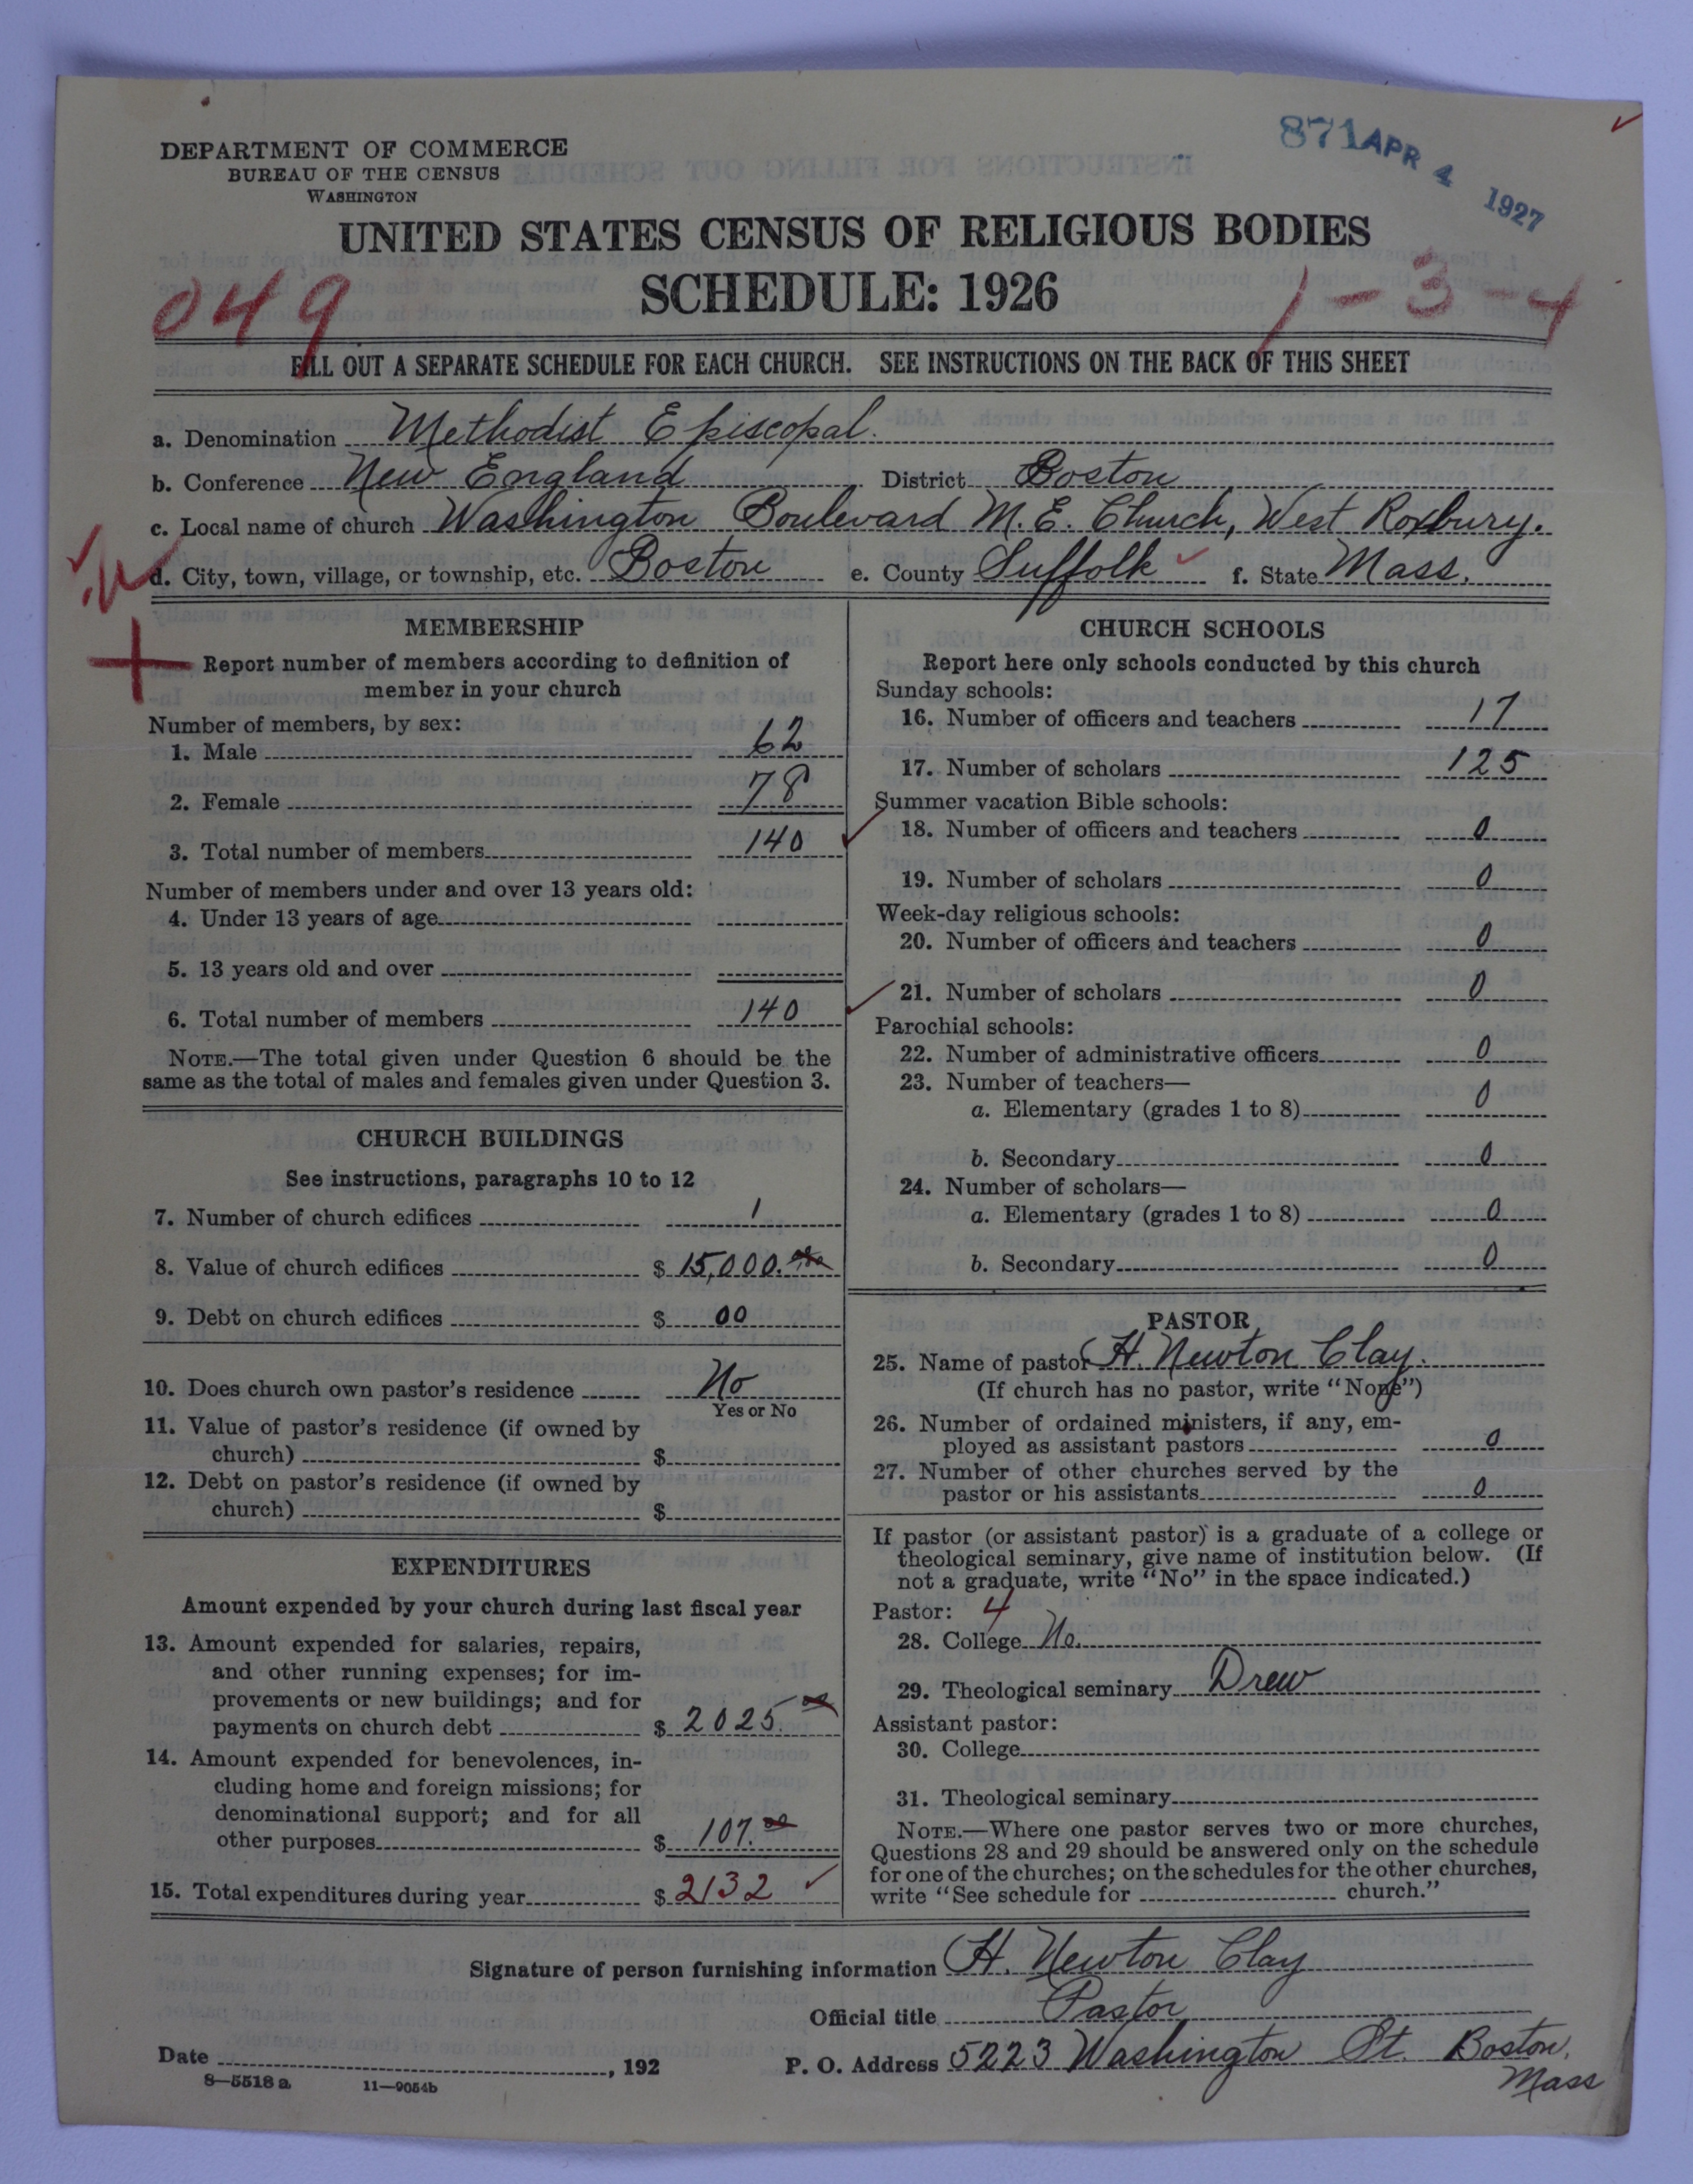 871 APR 4 1927
DEPARTMENT OF COMMERCE
BUREAU OF THE CENSUS
WASHINGTON
UNITED STATES CENSUS OF RELIGIOUS BODIES
SCHEDULE: 1926
049
1-3-4
FILL OUT A SEPARATE SCHEDULE FOR EACH CHURCH. SEE INSTRUCTIONS ON THE BACK OF THIS SHEET
a. Denomination Methodist Episcopal.
b. Conference New England District Boston
c. Local name of church Washington Boulevard M. E. Church, West Roxbury.
d. City, town, village, or township, etc. Boston e. County Suffolk f. State Mass.
MEMBERSHIP
Report number of members according to definition of
member in your church
Number of members, by sex:
1. Male 62
2. Female 78
3. Total number of members 140
Number of members under and over 13 years old:
4. Under 13 years of age
5. 13 years old and over
6. Total number of members 140
NOTE.—The total given under Question 6 should be the
same as the total of males and females given under Question 3.
CHURCH BUILDINGS
See instructions, paragraphs 10 to 12
7. Number of church edifices 1
8. Value of church edifices $ 15,000.
9. Debt on church edifices $ 00
10. Does church own pastor's residence No
Yes or No
11. Value of pastor's residence (if owned by
church) $
12. Debt on pastor's residence (if owned by
church) $
EXPENDITURES
Amount expended by your church during last fiscal year
13. Amount expended for salaries, repairs,
and other running expenses; for im-
provements or new buildings; and for
payments on church debt $ 2025.00
14. Amount expended for benevolences, in-
cluding home and foreign missions; for
denominational support; and for all
other purposes $ 107.00
15. Total expenditures during year $ 2132
CHURCH SCHOOLS
Report here only schools conducted by this church
Sunday schools:
16. Number of officers and teachers 17
17. Number of scholars 125
Summer vacation Bible schools:
18. Number of officers and teachers 0
19. Number of scholars 0
Week-day religious schools:
20. Number of officers and teachers 0
21. Number of scholars 0
Parochial schools:
22. Number of administrative officers 0
23. Number of teachers—
a. Elementary (grades 1 to 8) 0
b. Secondary 0
24. Number of scholars—
a. Elementary (grades 1 to 8) 0
b. Secondary 0
PASTOR
25. Name of pastor H. Newton Clay.
(If church has no pastor, write "None")
26. Number of ordained ministers, if any, em-
ployed as assistant pastors 0
27. Number of other churches served by the
pastor or his assistants 0
If pastor (or assistant pastor) is a graduate of a college or
theological seminary, give name of institution below. (If
not a graduate, write "No" in the space indicated.)
Pastor: 4
28. College No.
29. Theological seminary Drew
Assistant pastor:
30. College
31. Theological seminary
NOTE.—Where one pastor serves two or more churches,
Questions 28 and 29 should be answered only on the schedule
for one of the churches; on the schedules for the other churches,
write "See schedule for church."
Signature of person furnishing information H. Newton Clay
Official title Pastor
Date , 192 P. O. Address 5223 Washington St. Boston,
Mass
8—5518 a 11—9054b